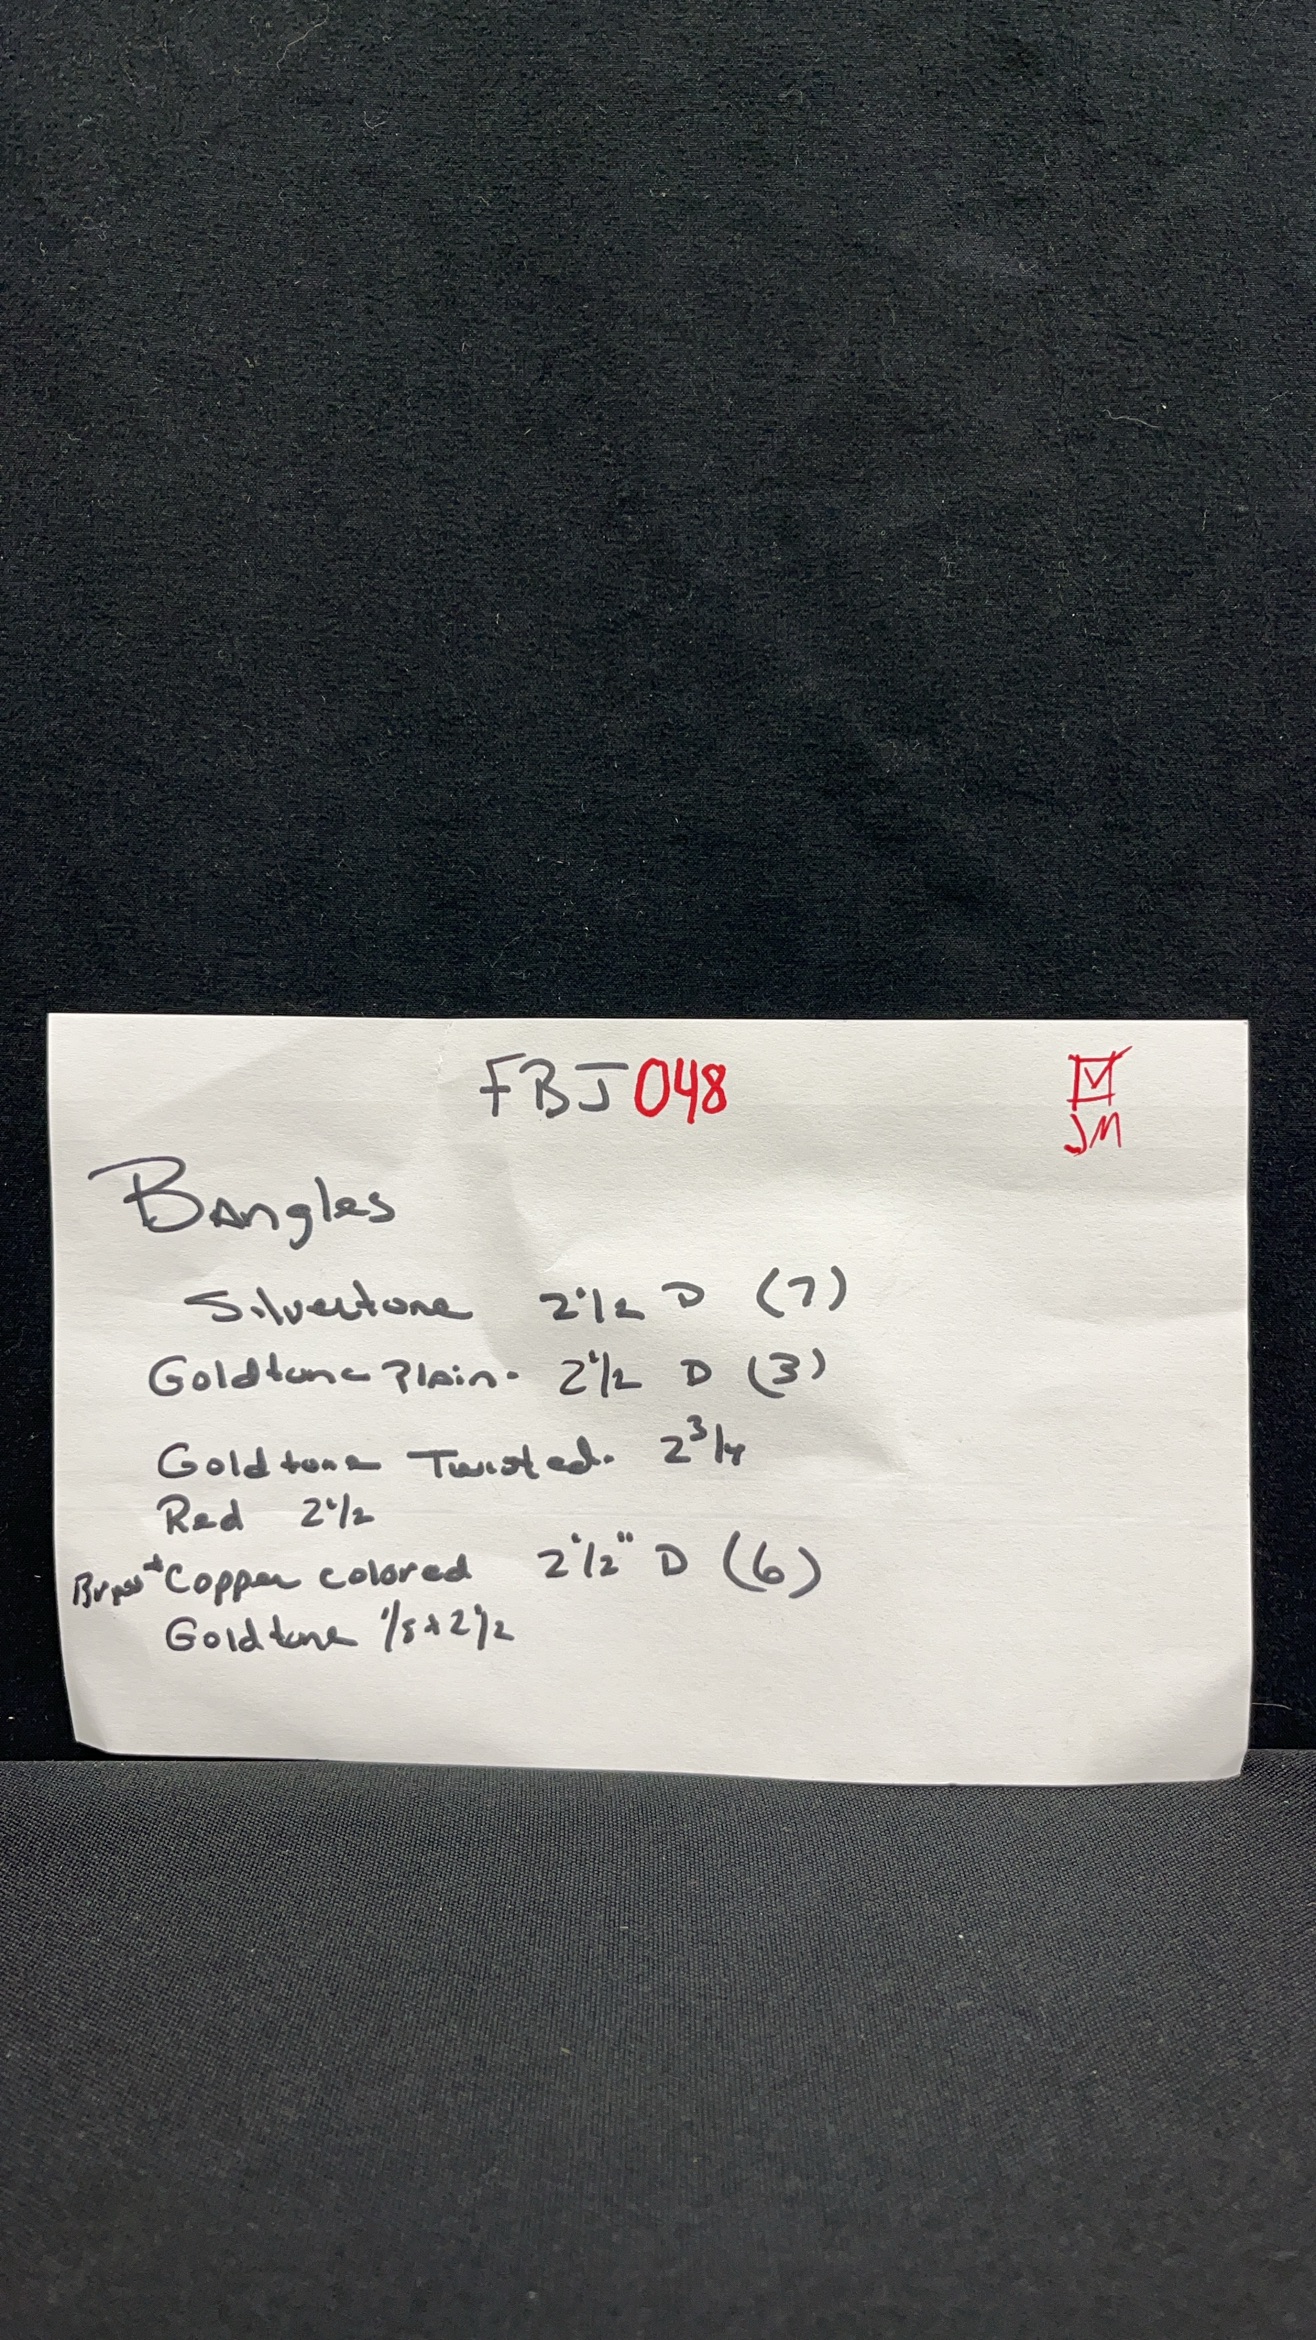 FBJ048
JM
Bangles
Silvertone 2 1/2 D (7)
Goldtone Plain. 2 1/2 D (3)
Goldtone Twisted. 2 3/4
Red 2 1/2
Brass + Copper colored 2 1/2" D (6)
Goldtone 1/8 + 2 1/2